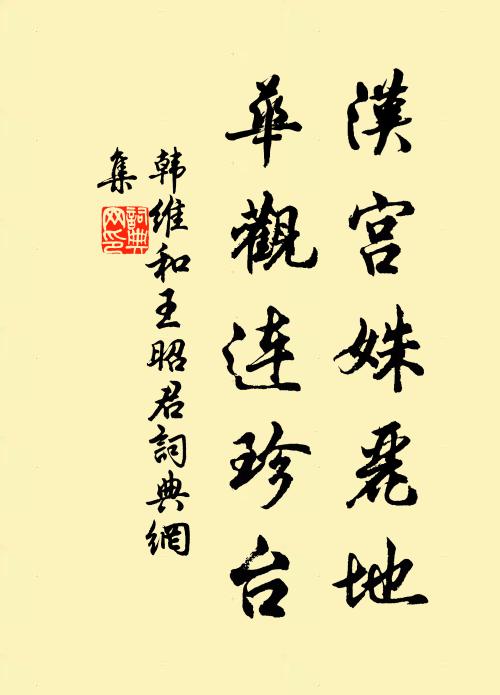 漢宮姝麗地
華觀连珍台
韩維和王昭君詞典網
集
詞典
网印